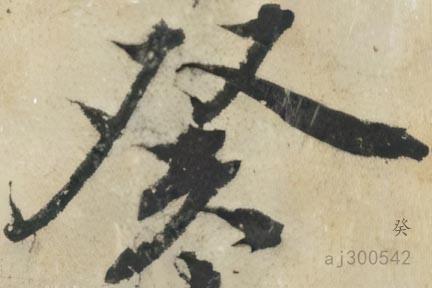 癸
癸
aj300542